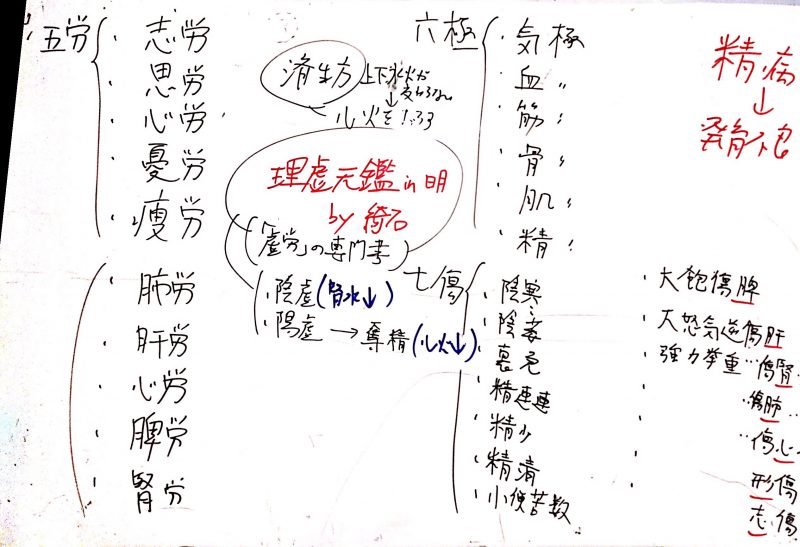 五労
・志労
・思労
・心労
・憂労
・瘦労
・肺労
・肝労
・心労
・脾労
・腎労
済生方
上下水火が
↓
心火を
理虚元鑑 in 明
by 綺石
(「虚労」の専門書)
・陰虚(腎水↓)
・陽虚 → 奪精(心火↓)
六極
・気極
・血〃
・筋〃
・骨〃
・肌〃
・精〃
精病
↓
発育不
七傷
・陰寒
・陰萎
・裏急
・精連連
・精少
・精清
・小便苦数
・大飽傷脾
・大怒気逆傷肝
・強力挙重…傷腎…
・…傷肺
・…傷心
・形傷
・志傷